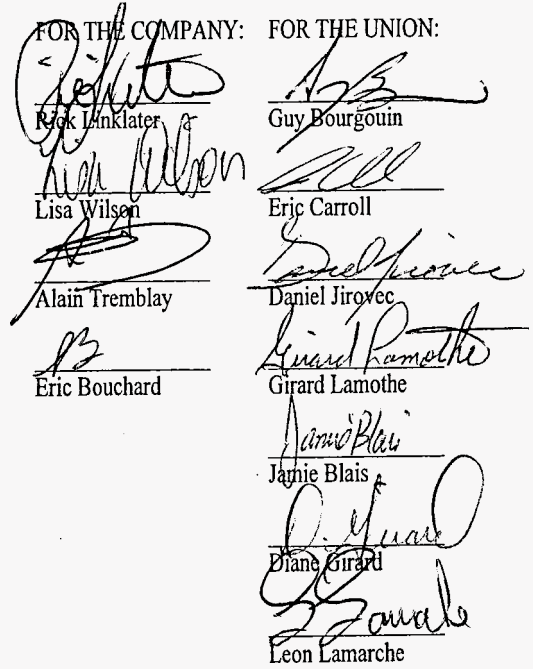 FOR THE COMPANY:
Rick Linklater
Lisa Wilson
Lisa Wilson
Alain Tremblay
EB
Eric Bouchard
FOR THE UNION:
Guy Bourgouin
Eric Carroll
Daniel Jirovec
Daniel Jirovec
Girard Lamothe
Girard Lamothe
Jamie Blais
Jamie Blais
D. Girard
Diane Girard
Leon Lamarche